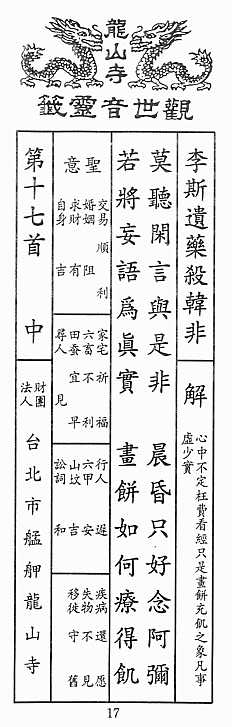 龍山寺
觀世音靈籤
李斯遺藥殺韓非
解
心中不定枉費看經只是畫餅充飢之象凡事
虛少實
莫聽閑言與是非 晨昏只好念阿彌
若將妄語爲眞實 畫餅如何療得飢
聖意
交易 順利
婚姻 阻
求財 有
自身 吉
家宅 祈福
六畜 不利
田蚕 宜早
尋人 見
行人 遲
六甲 安
山坟 吉
訟詞 和
疾病 還愿
失物 不見
移徙 守舊
第十七首 中
財團法人
台北市艋舺龍山寺
17